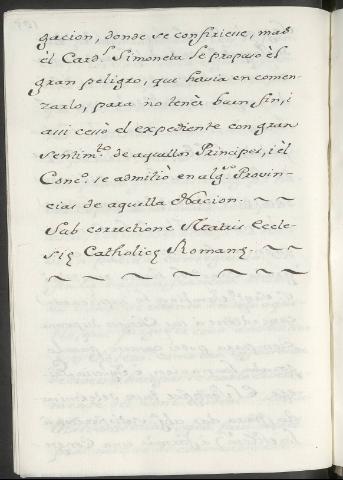 gacion, donde se confiriesse, mas
él Card.l Simoneta le propusò èl
gran peligro, que havia en comen-
zarlo, para no tenèr buen fin, i
assi cessò el expediente con gran
sentim.to de aquellos Principes, i èl
Conc.o se admitiò en alg.s Provin-
cias de aquella Nacion. ~ ~
Sub correctione Matris Eccle-
się Catholicę Romanę. ~ ~
~ ~ ~ ~ ~ ~ ~